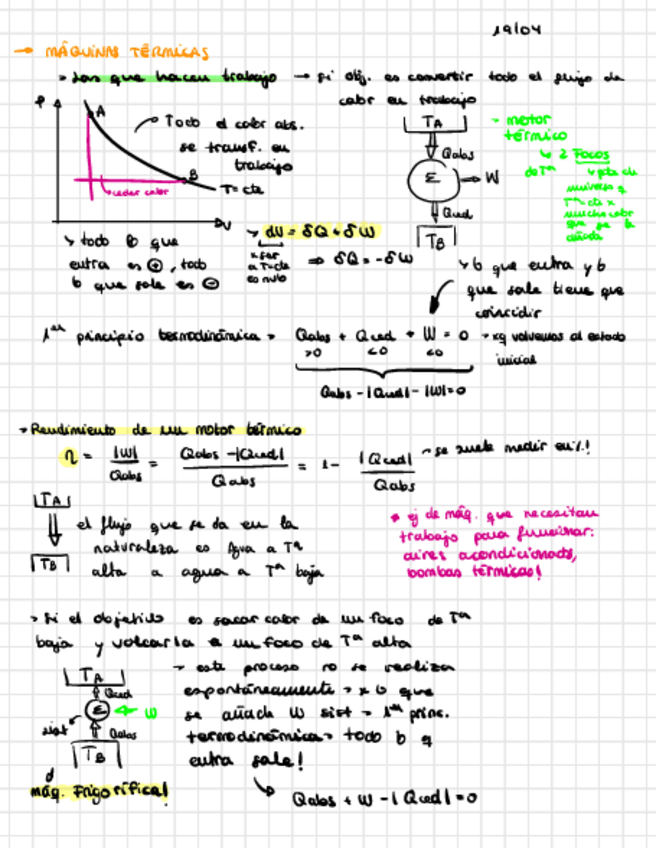 19/04
→ MÁQUINAS TÉRMICAS
> Las que hacen trabajo → Si obj. es convertir todo el flujo de
calor en trabajo
P
A
Todo el calor abs.
se transf. en
trabajo
B
T=cte
ceder calor
V
TA
Qabs
E → W
Qced
TB
- motor
térmico
↳ 2 Focos
de Tª
↳ pte de
universo q
Tª cte x
mucho calor
que se le
añada
↘ todo lo que
entra es ⊕, todo
lo que sale es ⊖
↘ dU = δQ + δW
x ser
a T=cte
es nulo
⇒ δQ = -δW
↘ lo que entra y lo
que sale tiene que
coincidir
1er principio termodinámica > Qabs + Qced + W = 0 → xq volvemos al estado
>0 <0 <0 inicial
Qabs - |Qced| - |W| = 0
> Rendimiento de un motor térmico
η = |W| / Qabs = Qabs - |Qced| / Qabs = 1 - |Qced| / Qabs → se suele medir en %!
TA
TB
el flujo que se da en la
naturaleza es agua a Tª
alta a agua a Tª baja
* ej de máq. que necesitan
trabajo para funcionar:
aires acondicionados,
bombas térmicas!
> Si el objetivo es sacar calor de un foco de Tª
baja y volcarla a un foco de Tª alta
TA
Qced
E ← W
sist
Qabs
TB
máq. Frigorífica!
→ este proceso no se realiza
espontáneamente > x lo que
se añade W sist > 1er princ.
termodinámica > todo lo q
entra sale!
↘ Qabs + W - |Qced| = 0